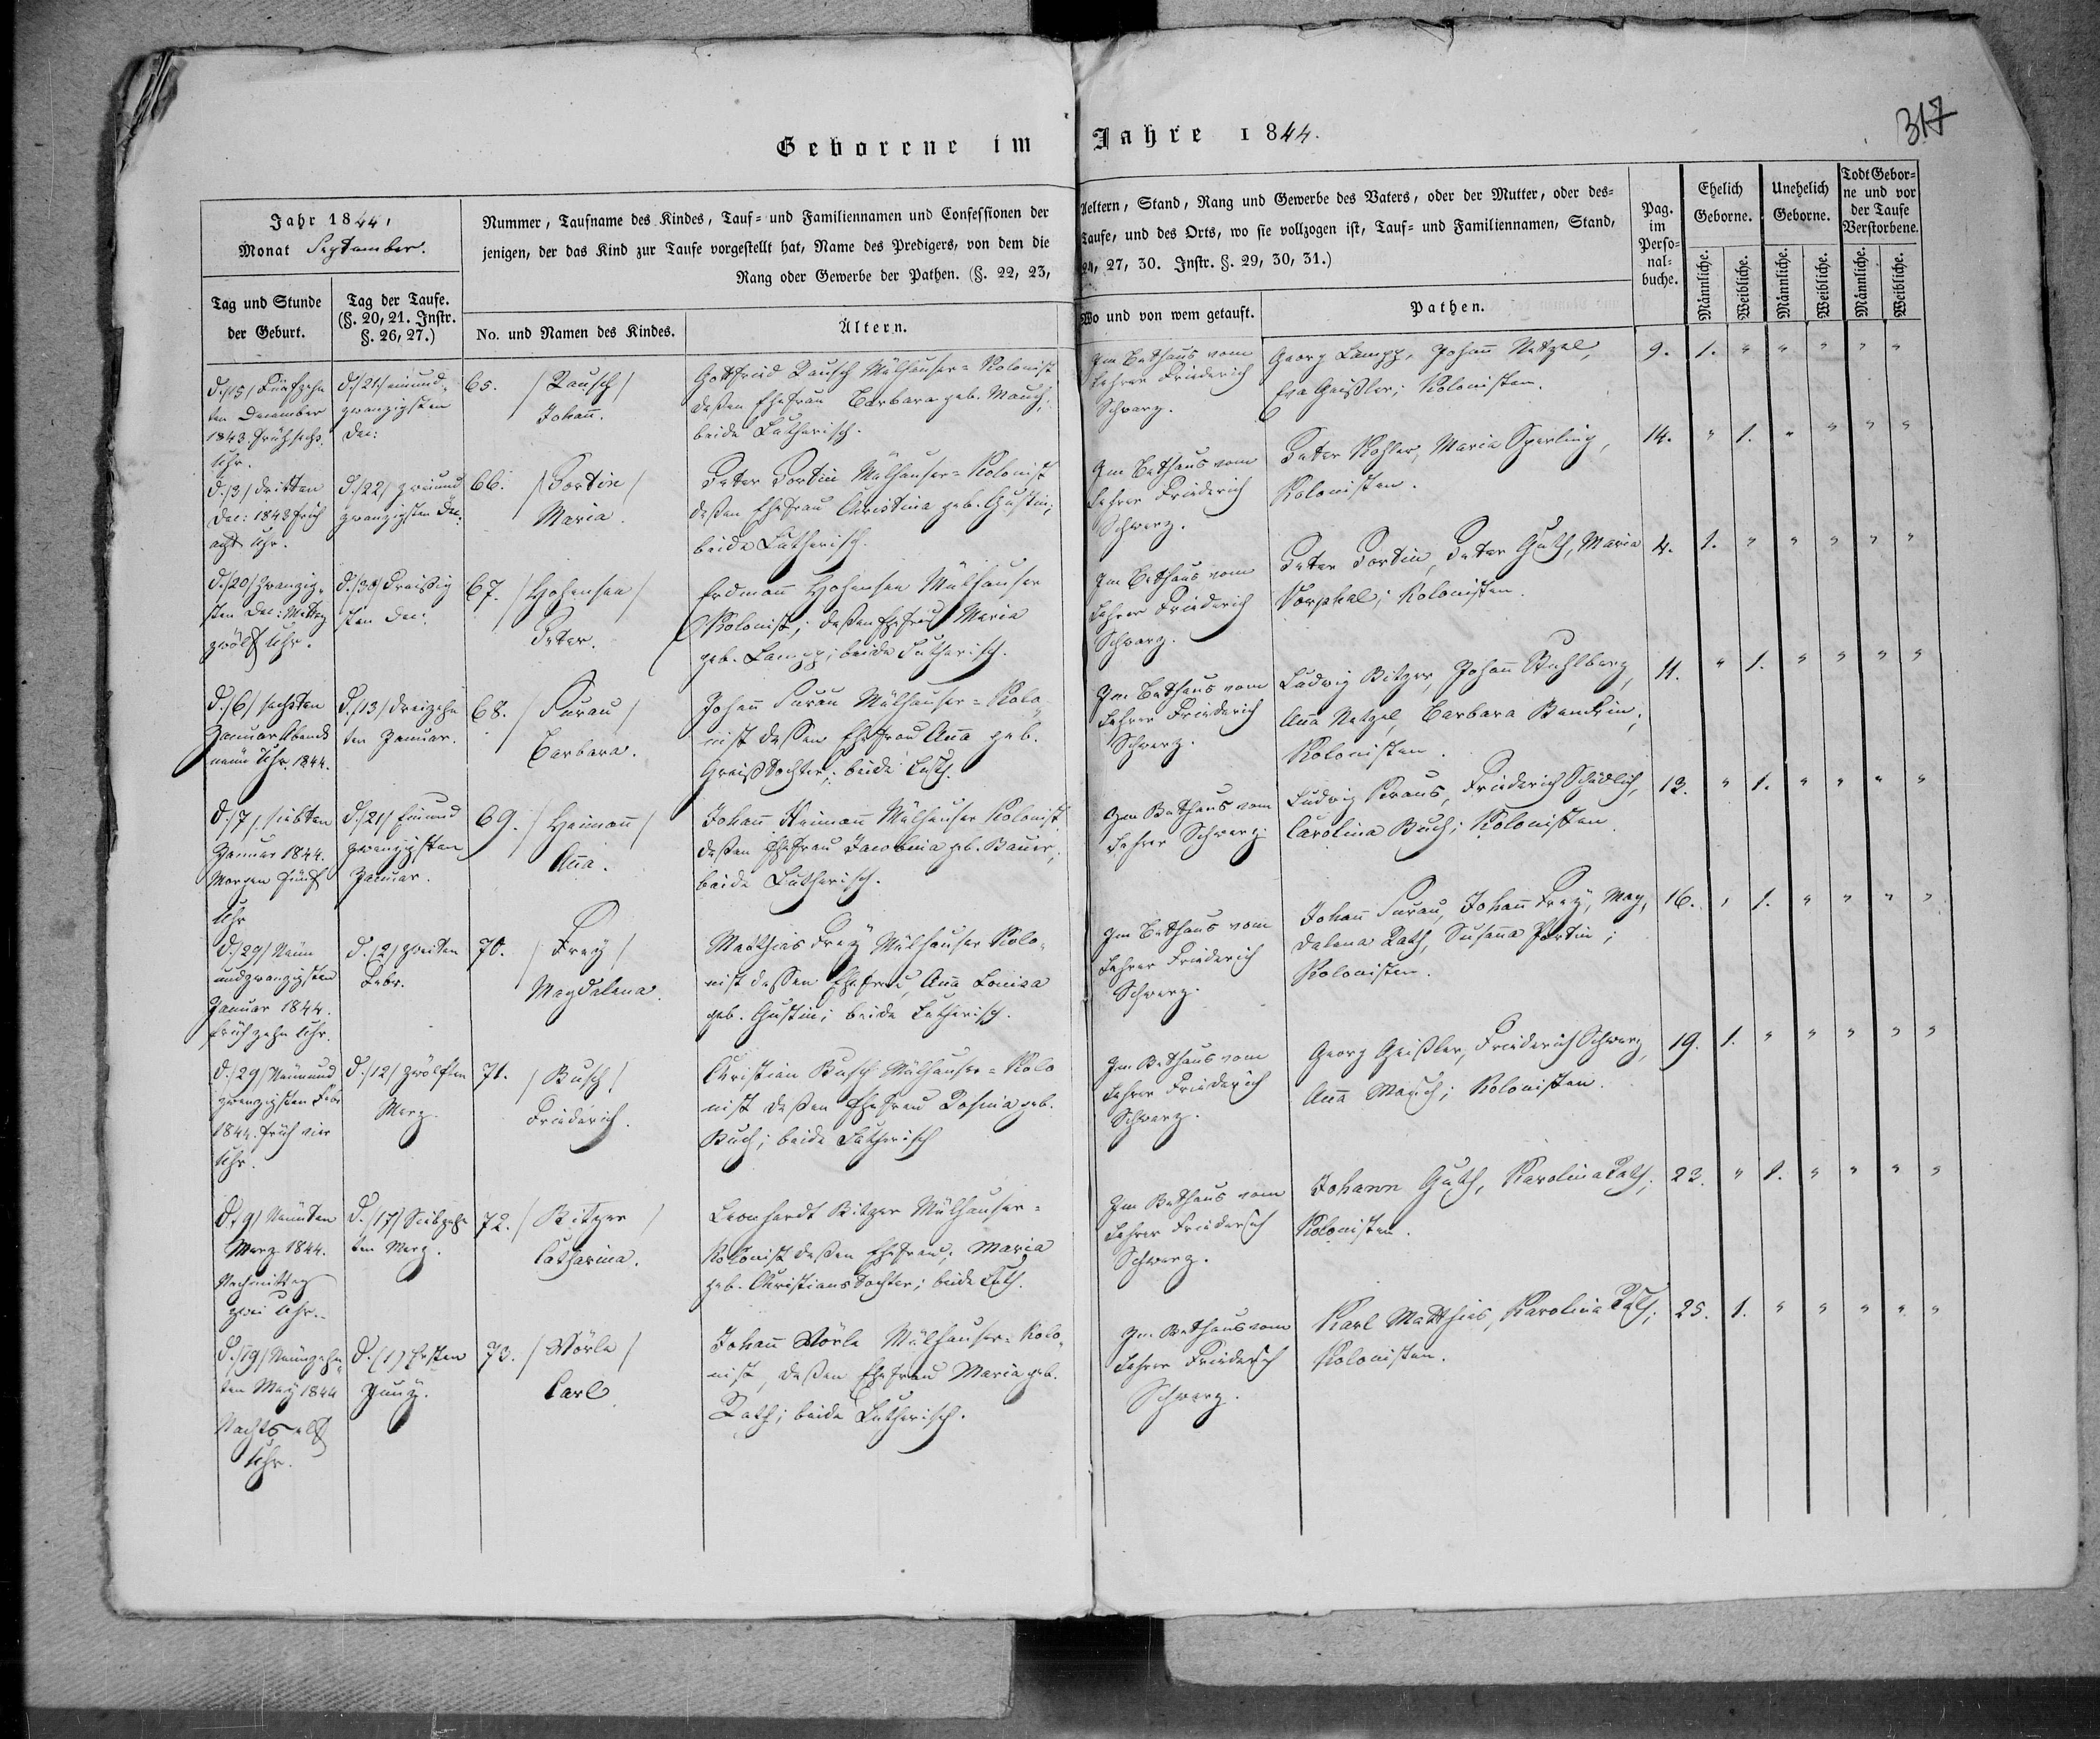 317
Geborene im Jahre 1844.
Jahr 1844,
Monat September.
Nummer, Taufname des Kindes, Tauf- und Familiennamen und Confessionen der Aeltern, Stand, Rang und Gewerbe des Vaters, oder der Mutter, oder des-
jenigen, der das Kind zur Taufe vorgestellt hat, Name des Predigers, von dem die Taufe, und des Orts, wo sie vollzogen ist, Tauf- und Familiennamen, Stand,
Rang oder Gewerbe der Pathen. (§. 22, 23, 24, 27, 30. Instr. §. 29, 30, 31.)
Pag.
im
Perso-
nal-
buche.
Ehelich
Geborne.
Unehelich
Geborne.
Todt Gebor-
ne und vor
der Taufe
Verstorbene.
Männliche.
Weibliche.
Männliche.
Weibliche.
Männliche.
Weibliche.
Tag und Stunde
der Geburt.
Tag der Taufe.
(§. 20, 21. Instr.
§. 26, 27.)
No. und Namen des Kindes.
Ältern.
Wo und von wem getauft.
Pathen.
d./15/ Fünfzehn
ten December
1843. früh sechs
Uhr.
d./21/ einund
zwanzigsten
Dec:
65. /Rausch/
Johan̄.
Gottfried Rausch Mülhauser-Kolonist
deßen Ehefrau Barbara geb. Mauch;
beide Lutherisch.
Im Bethaus vom
Lehrer Friederich
Schwarz.
Georg Lampp, Johan̄ Netzel,
Eva Geißler; Kolonisten.
9. 1. " " " " "
d./3/ dritten
Dec: 1843 früh
acht Uhr.
d./22/ zweiund
zwanzigsten Dec:
66. /Fortin/
Maria.
Peter Fortin Mülhauser-Kolonist
deßen Ehefrau Christina geb. Gustin;
beide Lutherisch.
Im Bethaus vom
Lehrer Friederich
Schwarz.
Peter Kohler, Maria Sperling,
Kolonisten.
14. " 1. " " " "
d./20/ zwanzig-
sten Dec: Mittag
zwölf Uhr.
d./30/ dreißig
sten Dec:
67. /Hohensee/
Peter.
Erdman̄ Hohensee Mülhauser
Kolonist; deßen Ehefrau Maria
geb. Lampp; beide Lutherisch.
Im Bethaus vom
Lehrer Friederich
Schwarz.
Peter Fortin, Peter Guth, Maria
Kolonisten.
4. 1. " " " " "
d./6/ sechsten
Januar Abends
neun Uhr. 1844.
d./13/ dreizehn
ten Januar.
68. /Surau/
Barbara.
Johan̄ Surau Mülhauser-Kolo
nist dessen Ehefrau An̄a geb.
beide Luth.
Im Bethaus vom
Lehrer Friederich
Schwarz.
Ludwig Bitzer, Johan̄ Stuhlberg,
An̄a Netzel, Barbara
Kolonisten.
11. " 1. " " " "
d./7/. siebten
Januar 1844.
Morgen fünf
Uhr
d./21/ Einund
zwanzigsten
Januar.
69. /Heiman̄/
An̄a.
Johan̄ Heiman̄ Mülhauser Kolonist
deßen Ehefrau Jacobina geb. Bauer;
beide Lutherisch.
Im Bethaus vom
Lehrer Schwarz.
Ludwig Kraus, Friederich Schädlich,
Carolina Buch; Kolonisten
13. " 1. " " " "
d./29/ Neun
undzwanzigsten
Januar 1844.
früh zehn Uhr.
d. /2/ zweiten
Febr.
70. /Frey/
Magdalena.
Matthias Frey Mülhauser Kolo-
nist dessen Ehefrau, An̄a Louisa
geb. Gustin; beide Lutherisch.
Im Bethaus vom
Lehrer Friederich
Schwarz.
Johan̄ Surau, Johan̄ Frey, Mag,
dalena Rath, Susan̄a Fortin;
Kolonisten.
16. " 1. " " " "
d./29/ Neunund
zwanzigsten Febr
1844. früh vier
Uhr.
d./12/ zwölften
Merz.
71. /Busch/
Friederich.
Christian Busch Mülhauser-Kolo
nist deßen Ehefrau Rosina geb.
Buch; beide Lutherisch
Im Bethaus vom
Lehrer Friederich
Schwarz.
Georg Geißler, Friederich Schwarz,
An̄a Mauch; Kolonisten.
19. 1. " " " " "
d. /9/ Neunten
Merz 1844.
Nachmittag
zwei Uhr.
d. /17/ Siebzehn
ten Merz.
72. /Bitzer/
Catharina.
Leonhardt Bitzer Mülhauser-
Kolonist deßen Ehefrau, Maria
geb. Christians Tochter; beide Luth.
Im Bethaus vom
Lehrer Friederich
Schwarz.
Johann Guth, Karolina Rath,
Kolonisten.
23. " 1. " " " "
d./19/ Neunzehn-
ten May 1844
Nachts elf
Uhr.
d. (1) Ersten
Juny.
73. /Wörle/
Carl
Johan̄ Wörle Mülhauser-Kolo-
nist, deßen Ehefrau Maria geb.
Rath; beide Lutherisch.
Im Bethaus vom
Lehrer Friederich
Schwarz.
Karl Matthies, Karolina Rath;
Kolonisten.
25. 1. " " " " "